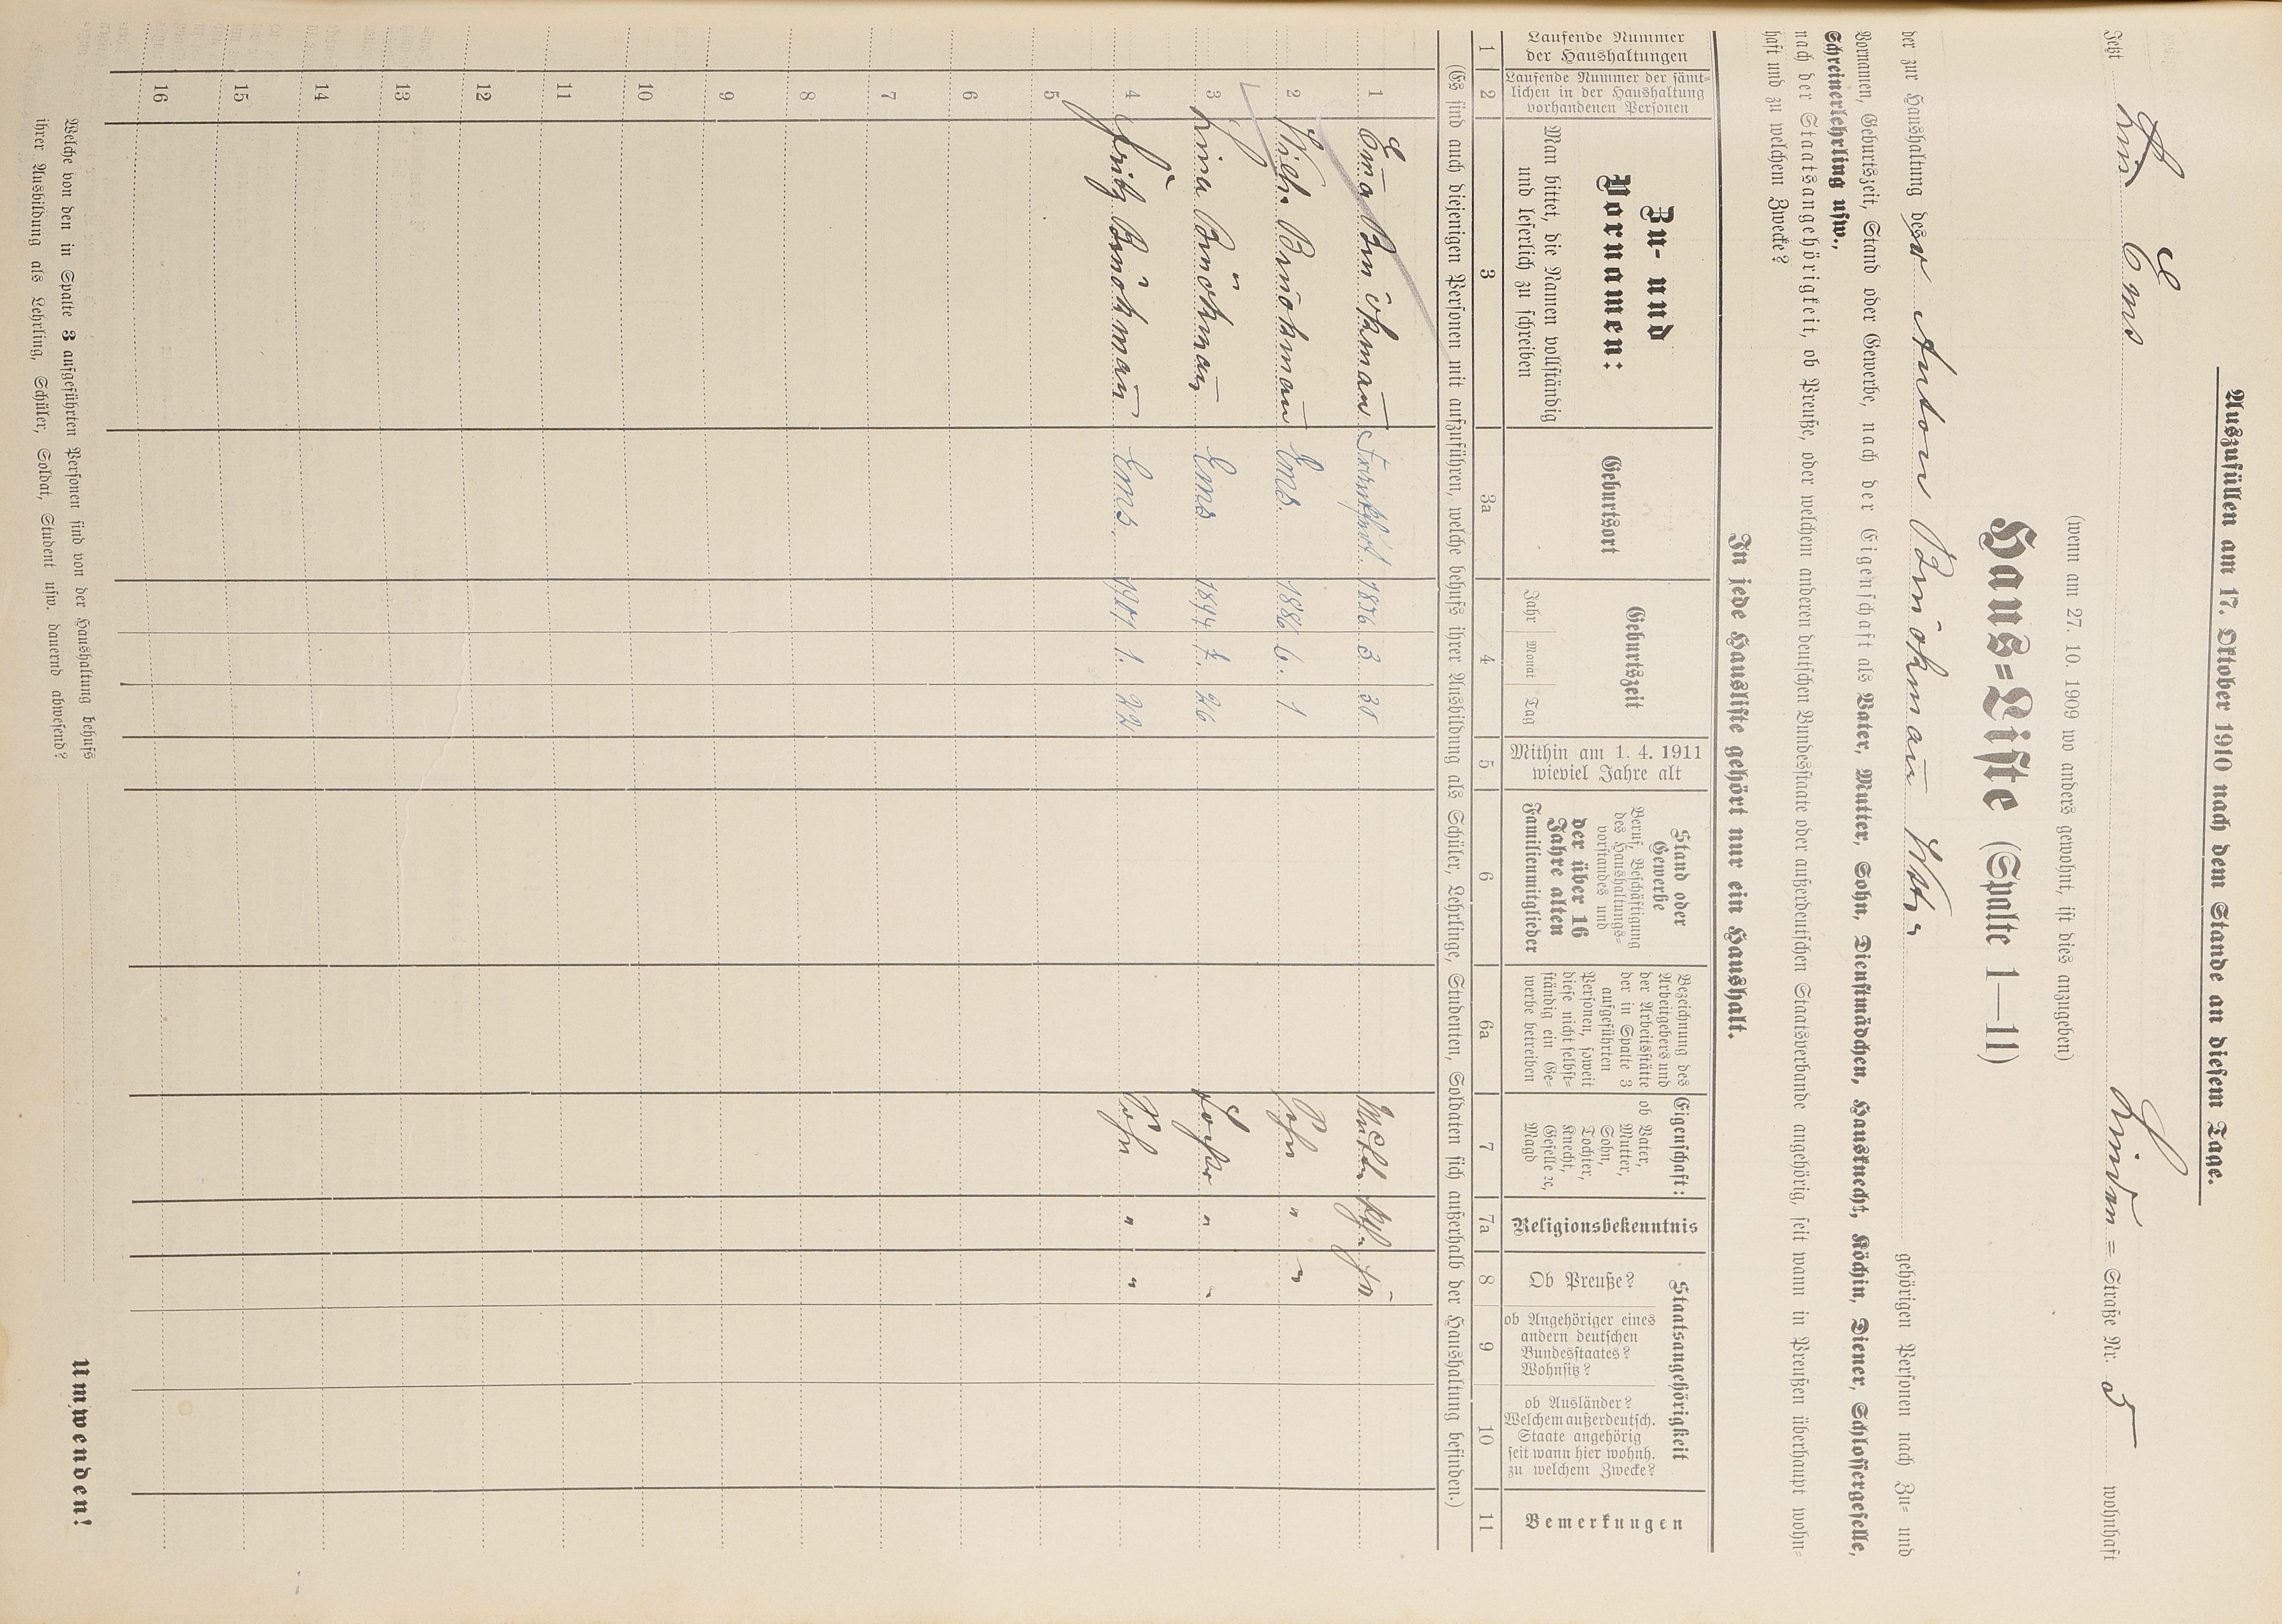 Auszufüllen am 17. Oktober 1910 nach dem Stande an diesem Tage.
Jetzt in Ems Linden = Straße Nr. 5 wohnhaft
(wenn am 27. 10. 1909 wo anders gewohnt, ist dies anzugeben)
Haus=Liste (Spalte 1—11)
der zur Haushaltung des Anton Brückmann Wtw. gehörigen Personen nach Zu- und
Vornamen, Geburtszeit, Stand oder Gewerbe, nach der Eigenschaft als Vater, Mutter, Sohn, Dienstmädchen, Hausknecht, Köchin, Diener, Schlossergeselle,
Schreinerlehrling usw.,
nach der Staatsangehörigkeit, ob Preuße, oder welchem anderen deutschen Bundesstaate oder außerdeutschen Staatsverbande angehörig, seit wann in Preußen überhaupt wohn-
haft und zu welchem Zwecke?
In jede Hausliste gehört nur ein Haushalt.
Laufende Nummer der Haushaltungen
Laufende Nummer der sämt-
lichen in der Haushaltung
vorhandenen Personen
Zu- und
Vornamen:
Man bittet, die Namen vollständig
und leserlich zu schreiben
Geburtsort
Geburtszeit
Jahr Monat Tag
Mithin am 1. 4. 1911
wieviel Jahre alt
Stand oder
Gewerbe
Beruf, Beschäftigung
des Haushaltungs-
vorstandes und
der über 16
Jahre alten
Familienmitglieder
Bezeichnung des
Arbeitgebers und
der Arbeitsstätte
der in Spalte 3
aufgeführten
Personen, soweit
diese nicht selbst-
ständig ein Ge-
werbe betreiben
Eigenschaft:
ob Vater,
Mutter,
Sohn,
Tochter,
Knecht,
Geselle ec,
Magd
Religionsbekenntnis
Staatsangehörigkeit
Ob Preuße?
ob Angehöriger eines
andern deutschen
Bundesstaates?
Wohnsitz?
ob Ausländer?
Welchem außerdeutsch.
Staate angehörig
seit wann hier wohnh.
zu welchem Zwecke?
Bemerkungen
1 2 3 3a 4 5 6 6a 7 7a 8 9 10 11
(Es sind auch diejenigen Personen mit aufzuführen, welche behufs ihrer Ausbildung als Schüler, Lehrlinge, Studenten, Soldaten sich außerhalb der Haushaltung befinden.)
1 Brückmann 1856 3 30 Mutter
2 Wilh. Brückmann Ems. 1886 6. 1 Sohn " "
3 Lina Brückmann Ems 26 Tochter " "
4 Fritz Brückmann Ems. 1901 1. 22 Sohn " "
5
6
7
8
9
10
11
12
13
14
15
16
Welche von den in Spalte 3 aufgeführten Personen sind von der Haushaltung behufs
ihrer Ausbildung als Lehrling, Schüler, Soldat, Student usw. dauernd abwesend?
Umwenden!